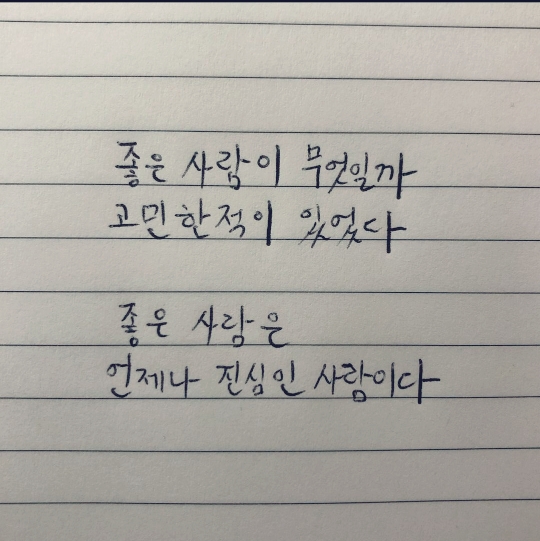 좋은 사람이 무엇일까
고민한적이 있었다
좋은 사람은
언제나 진심인 사람이다